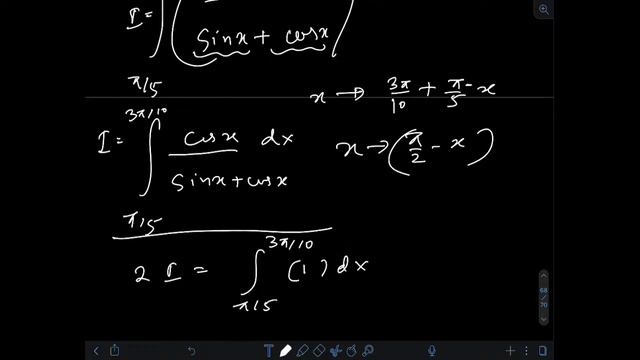 I = ∫
sinx + cosx
π/5
x → 3π/10 + π/5 - x
3π/10
I = ∫ cosx / sinx + cosx dx
x → (π/2 - x)
π/5
2 I = ∫ π/5 3π/10 (1) dx
68
70
T